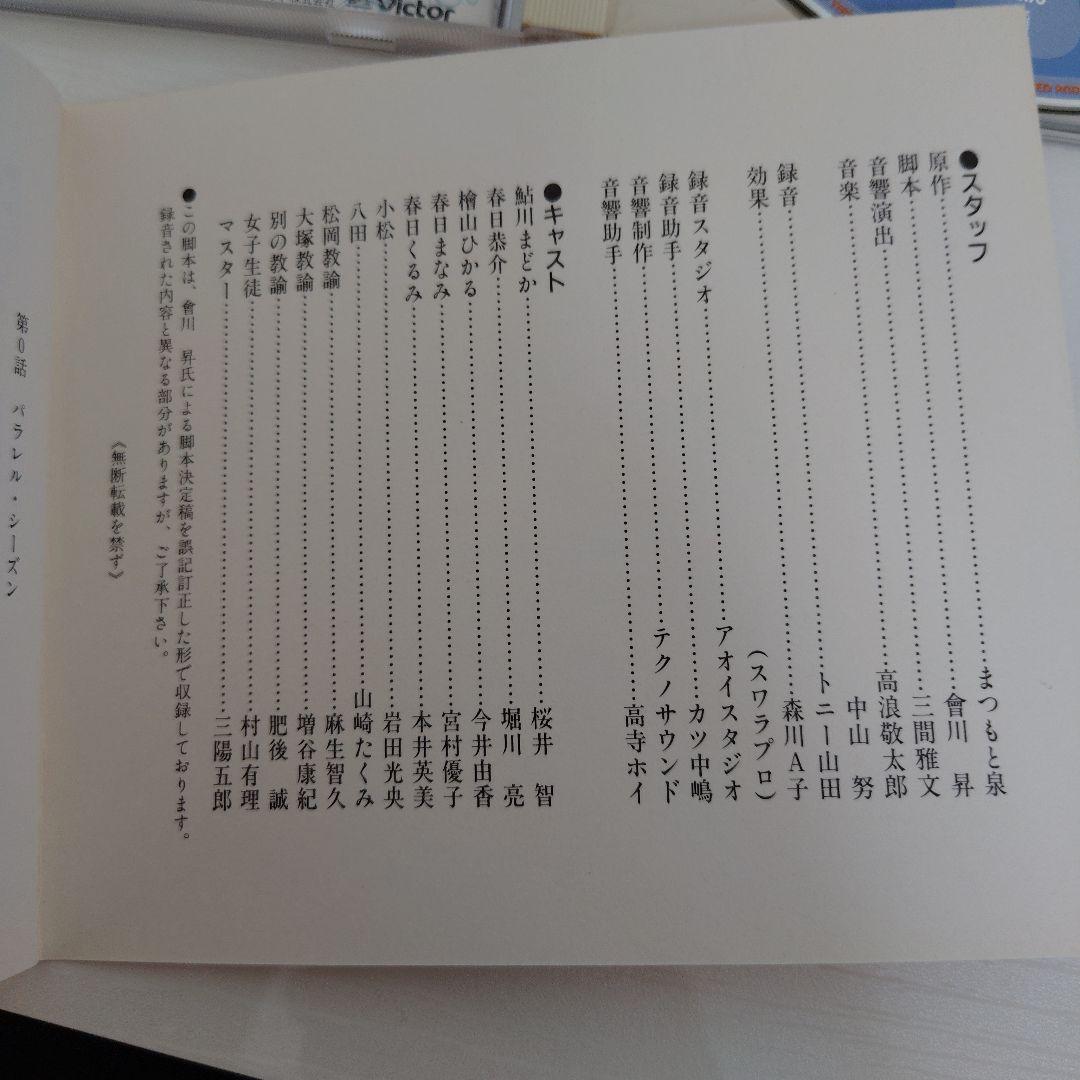 ●スタッフ
原作……………まつもと泉
脚本……………會川　昇
音響演出……………三間雅文
音楽……………高浪敬太郎
中山　努
録音……………トニー山田
効果……………森川A子
(スワラプロ)
録音スタジオ……………アオイスタジオ
録音助手……………カツ中嶋
音響制作……………テクノサウンド
音響助手……………高寺ホイ
●キャスト
鮎川まどか……………桜井　智
春日恭介……………堀川　亮
檜山ひかる……………今井由香
春日まなみ……………宮村優子
春日くるみ……………本井英美
小松……………岩田光央
八田……………山崎たくみ
松岡教諭……………麻生智久
大塚教諭……………増谷康紀
別の教諭……………肥後　誠
女子生徒……………村山有理
マスター……………三陽五郎
●この脚本は、會川　昇氏による脚本決定稿を誤記訂正した形で収録しております。
録音された内容と異なる部分がありますが、ご了承下さい。
《無断転載を禁ず》
第0話　パラレル・シーズン
Victor